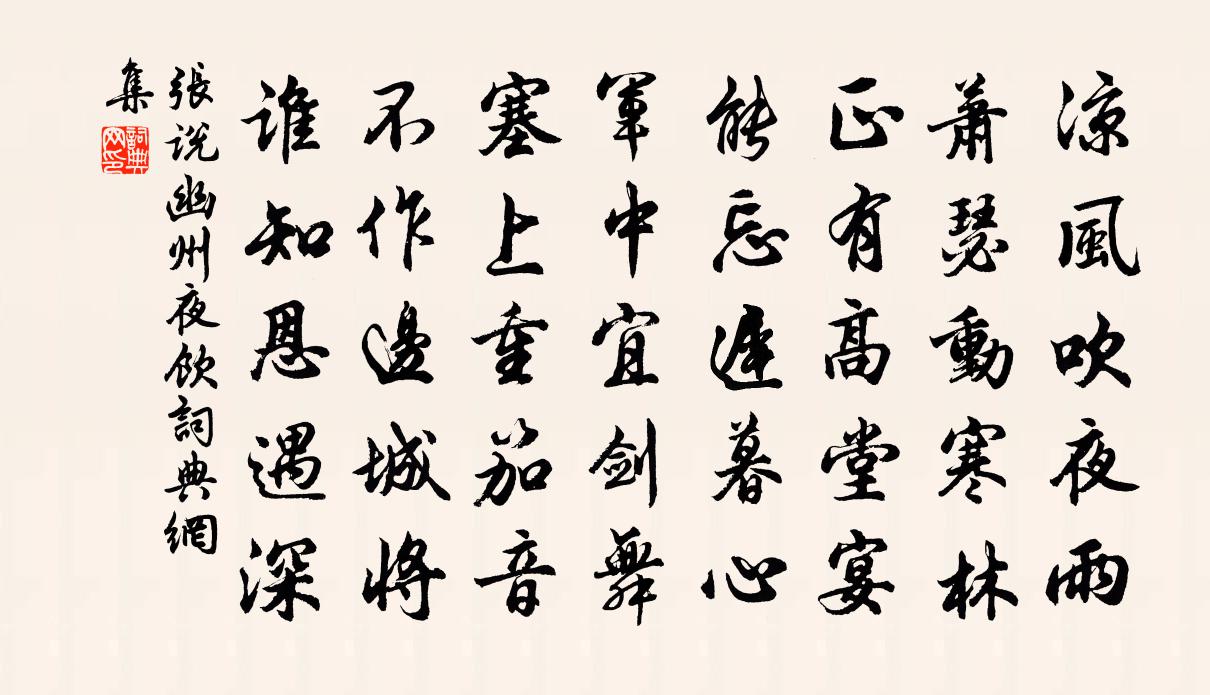 凉風吹夜雨
蕭瑟動寒林
正有高堂宴
能忘遲暮心
軍中宜劍舞
塞上重笳音
不作邊城將
誰知恩遇深
張説幽州夜飲詞典網
集
詞典
网印